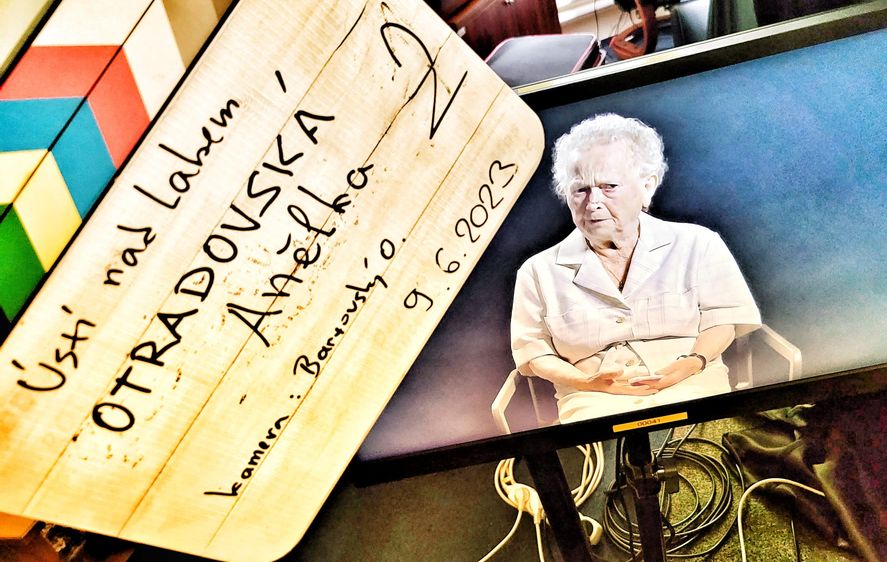 Ústí nad Labem
OTRADOVSKÁ 2
Anělka
kamera: Bartovský O.
9.6.2023
00041